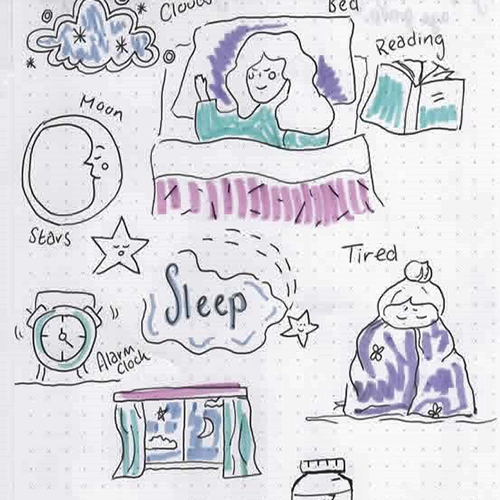 Clouds
Bed
Reading
Moon
Stars
Tired
Sleep
Alarm
clock